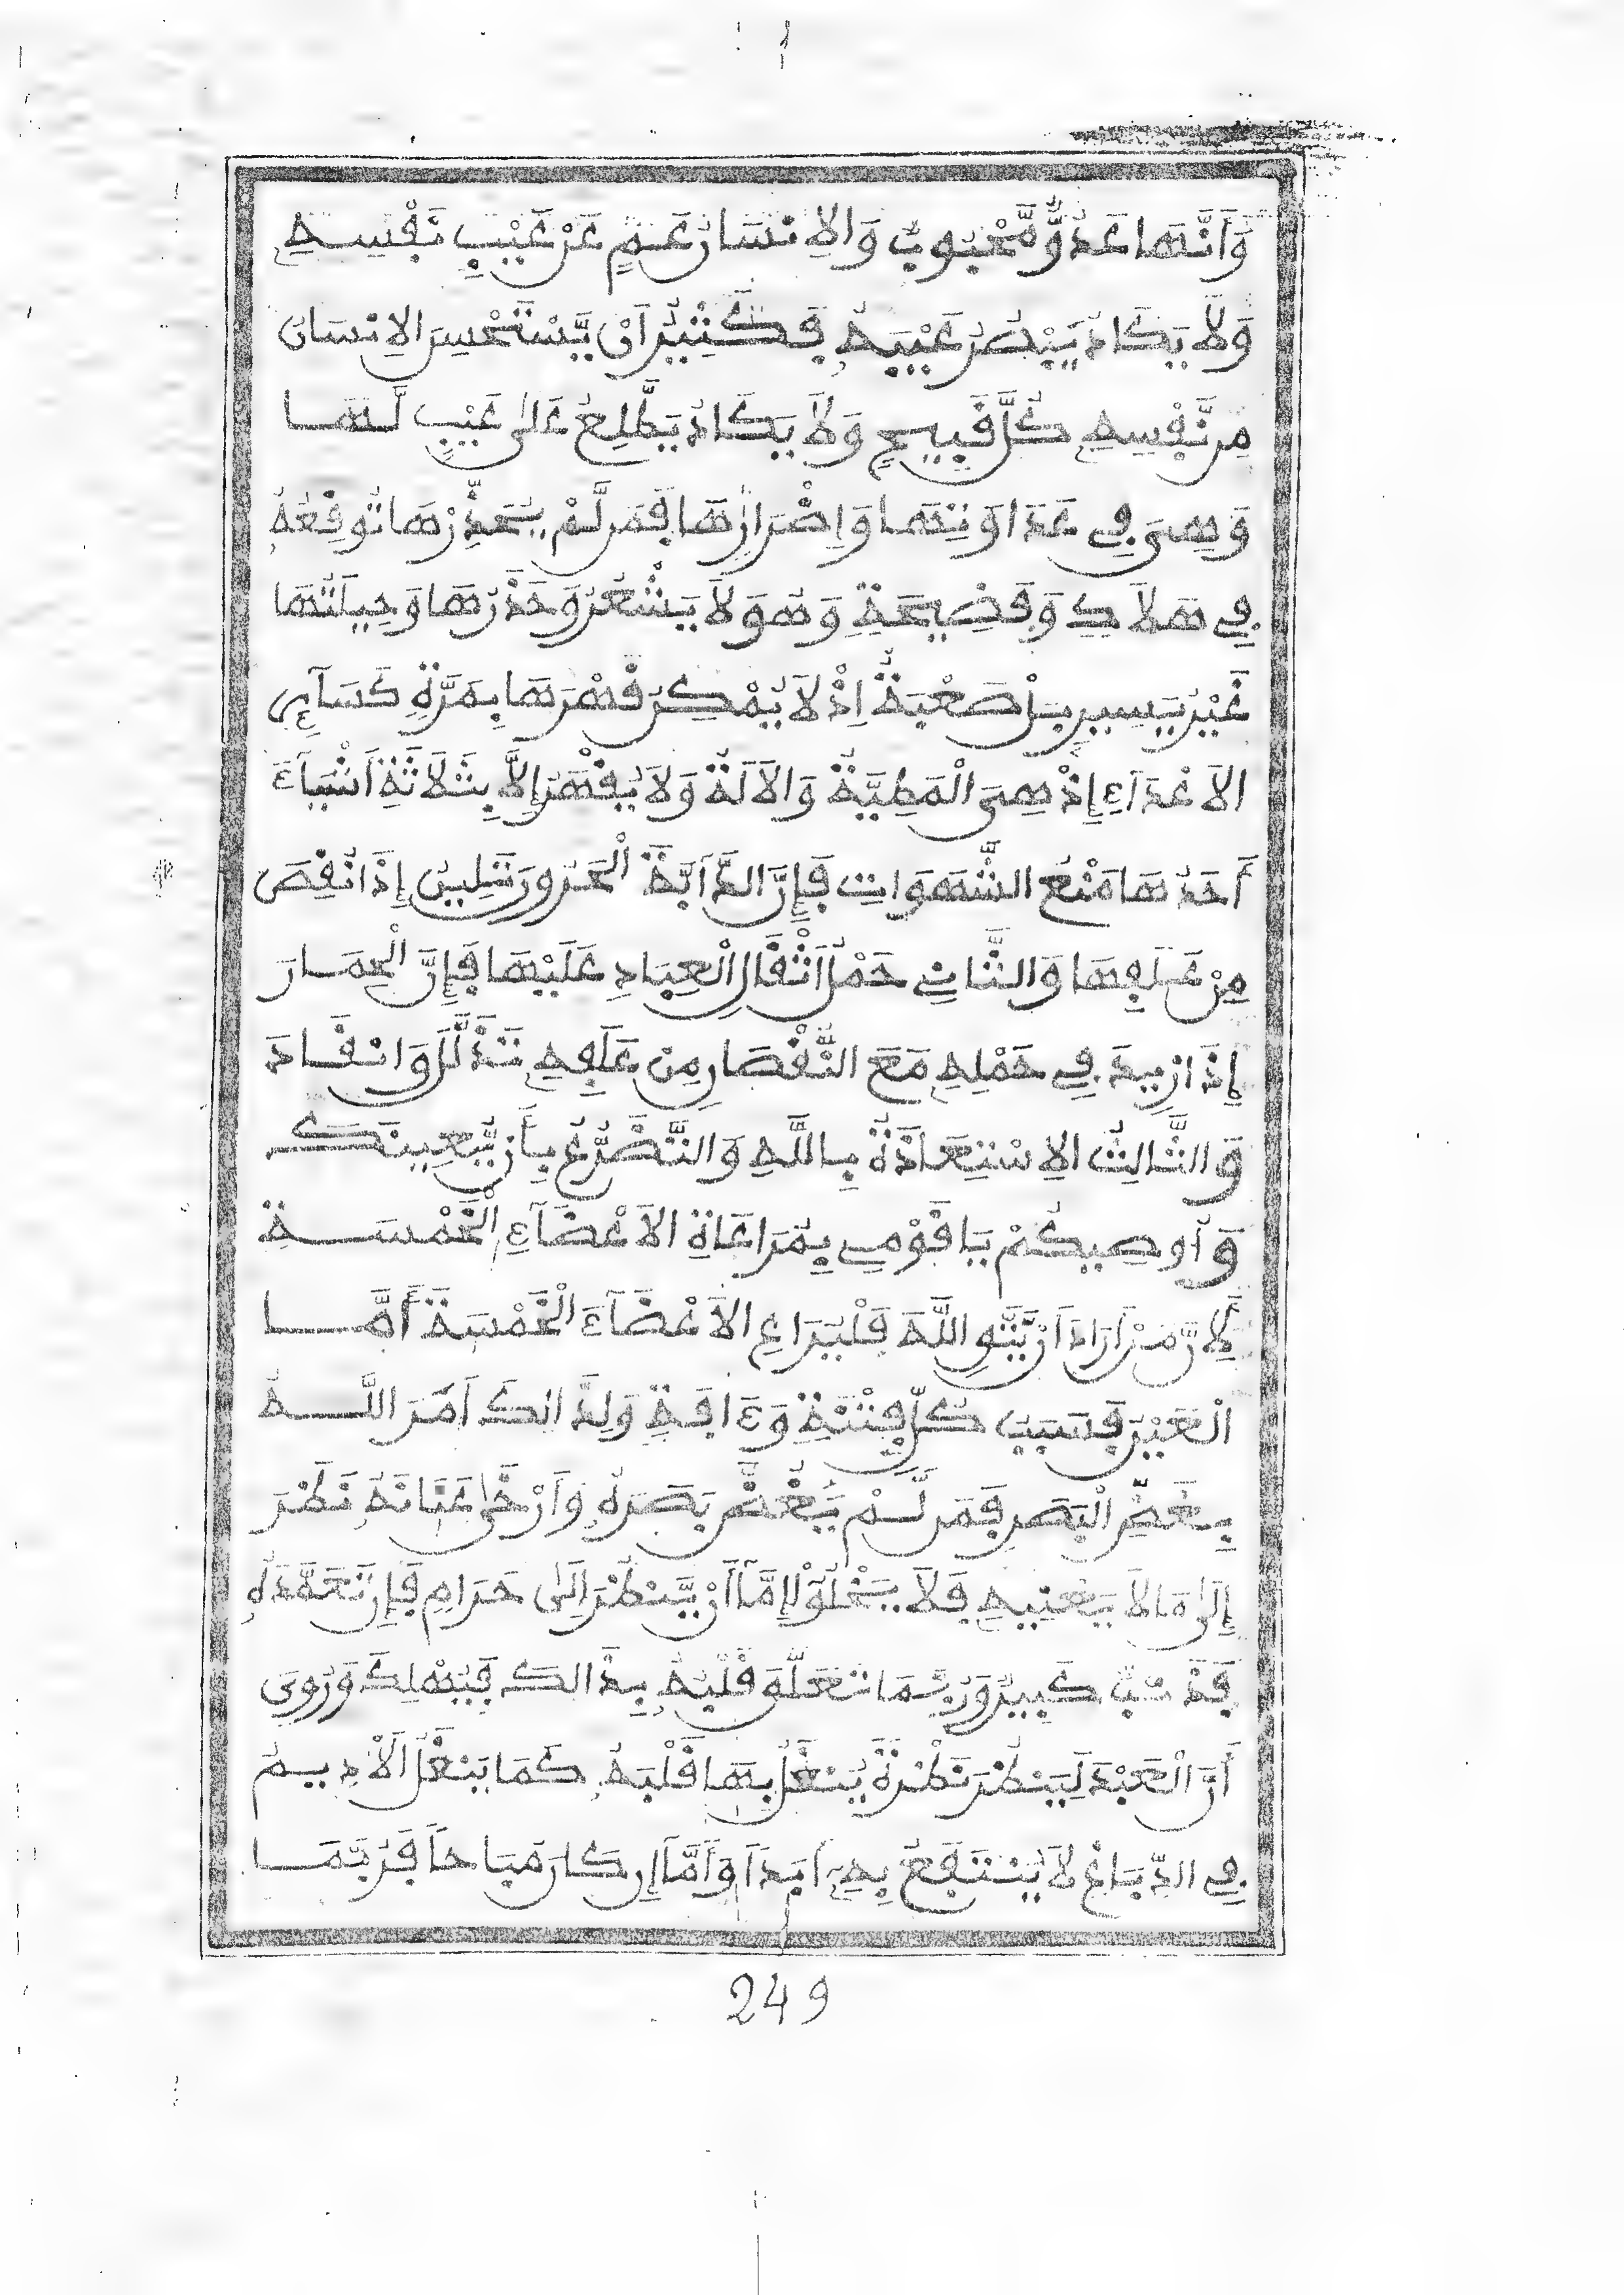 وَأَنَّهَا عَدُوٌّ مَّحْبُوبٌ وَالِانسَانُ عَمٍ عَنْ عَيْبِ نَفْسِهِ
وَلَا يَكَادُ يُبْصِرُ عَيْبَهُ فَكَثِيرٌ أَنْ يَّسْتَحْسِنَ الِانسَانُ
مِن نَّفْسِهِ كُلَّ قَبِيحٍ وَلَا يَكَادُ يَطَّلِعُ عَلَى عَيْبٍ لَّهَا
وَهِيَ فِي عَدَاوَتِهَا وَإِضْرَارِهَا فَمَن لَّمْ يَحْذَرْهَا تُوقِعْهُ
فِي هَلَاكٍ وَفَضِيحَةٍ وَهُوَ لَا يَشْعُرُ وَحَذَرُهَا وَحِيلَتُهَا
غَيْرُ يَسِيرٍ بَلْ صَعْبَةٌ إِذْ لَا يُمْكِنُ قَهْرَهَا بِمَرَّةٍ كَسَآئِرِ
الَاعْدَآءِ إِذْ هِيَ الْمَطِيَّةُ وَالَالَةُ وَلَا يُقْهَرُ إِلَّا بِثَلَاثَةِ أَشْيَآءَ
أَحَدُهَا مَنْعُ الشَّهَوَاتِ فَإِنَّ الدَّآبَّةَ الْحَرُورَ تَلِينُ إِذَا نُقِصَ
مِنْ عَلَفِهَا وَالثَّانِي حَمْلُ أَثْقَالِ الْعِبَادِ عَلَيْهَا فَإِنَّ الْحِمَارَ
إِذَا زِيدَ فِي حَمْلِهِ مَعَ النُّقْصَانِ مِنْ عَلَفِهِ تَذَلَّلَ وَانقَادَ
وَالثَّالِثُ الِاسْتِعَاذَةُ بِاللَّهِ وَالتَّضَرُّعُ بِأَن يُّعِينَكَ
وَأُوصِيكُمْ يَا قَوْمِي بِمُرَاعَاةِ الَاعْضَآءِ الْخَمْسَةِ
لِأَنَّ مَنْ أَرَادَ أَنْ يَّتَّقِ اللَّهَ فَلْيُرَاعِ الَاعْضَآءَ الْخَمْسَةَ أَمَّا
الْعَيْنُ فَسَبَبُ كُلِّ فِتْنَةٍ وَءَافَةٍ وَلِذَالِكَ أَمَرَ اللَّهُ
بِغَضِّ الْبَصَرِ فَمَن لَّمْ يَغُضَّ بَصَرَهُ وَأَرْخَى عَنَانَهُ نَظَرَ
إِلَى مَا لَا يَعْنِيهِ فَلَا يَخْلُو إِمَّا أَنْ يَّنظُرَ إِلَى حَرَامٍ فَإِن تَعَمَّدَهُ
فَذَنْبٌ كَبِيرٌ وَرُبَّمَا تَعَلَّقَ قَلْبُهُ بِذَالِكَ فَيُهْلِكَ وَرُوِيَ
أَنَّ الْعَبْدَ لَيَنظُرَ نَظْرَةً يَنغَلُ بِهَا قَلْبَهُ كَمَا يَنغَلُ الَادِيمُ
فِي الدِّبَاغِ لَا يُنتَفَعُ بِهِ أَبَدًا وَأَمَّا إِن كَانَ مُبَاحًا فَرُبَّمَا
249